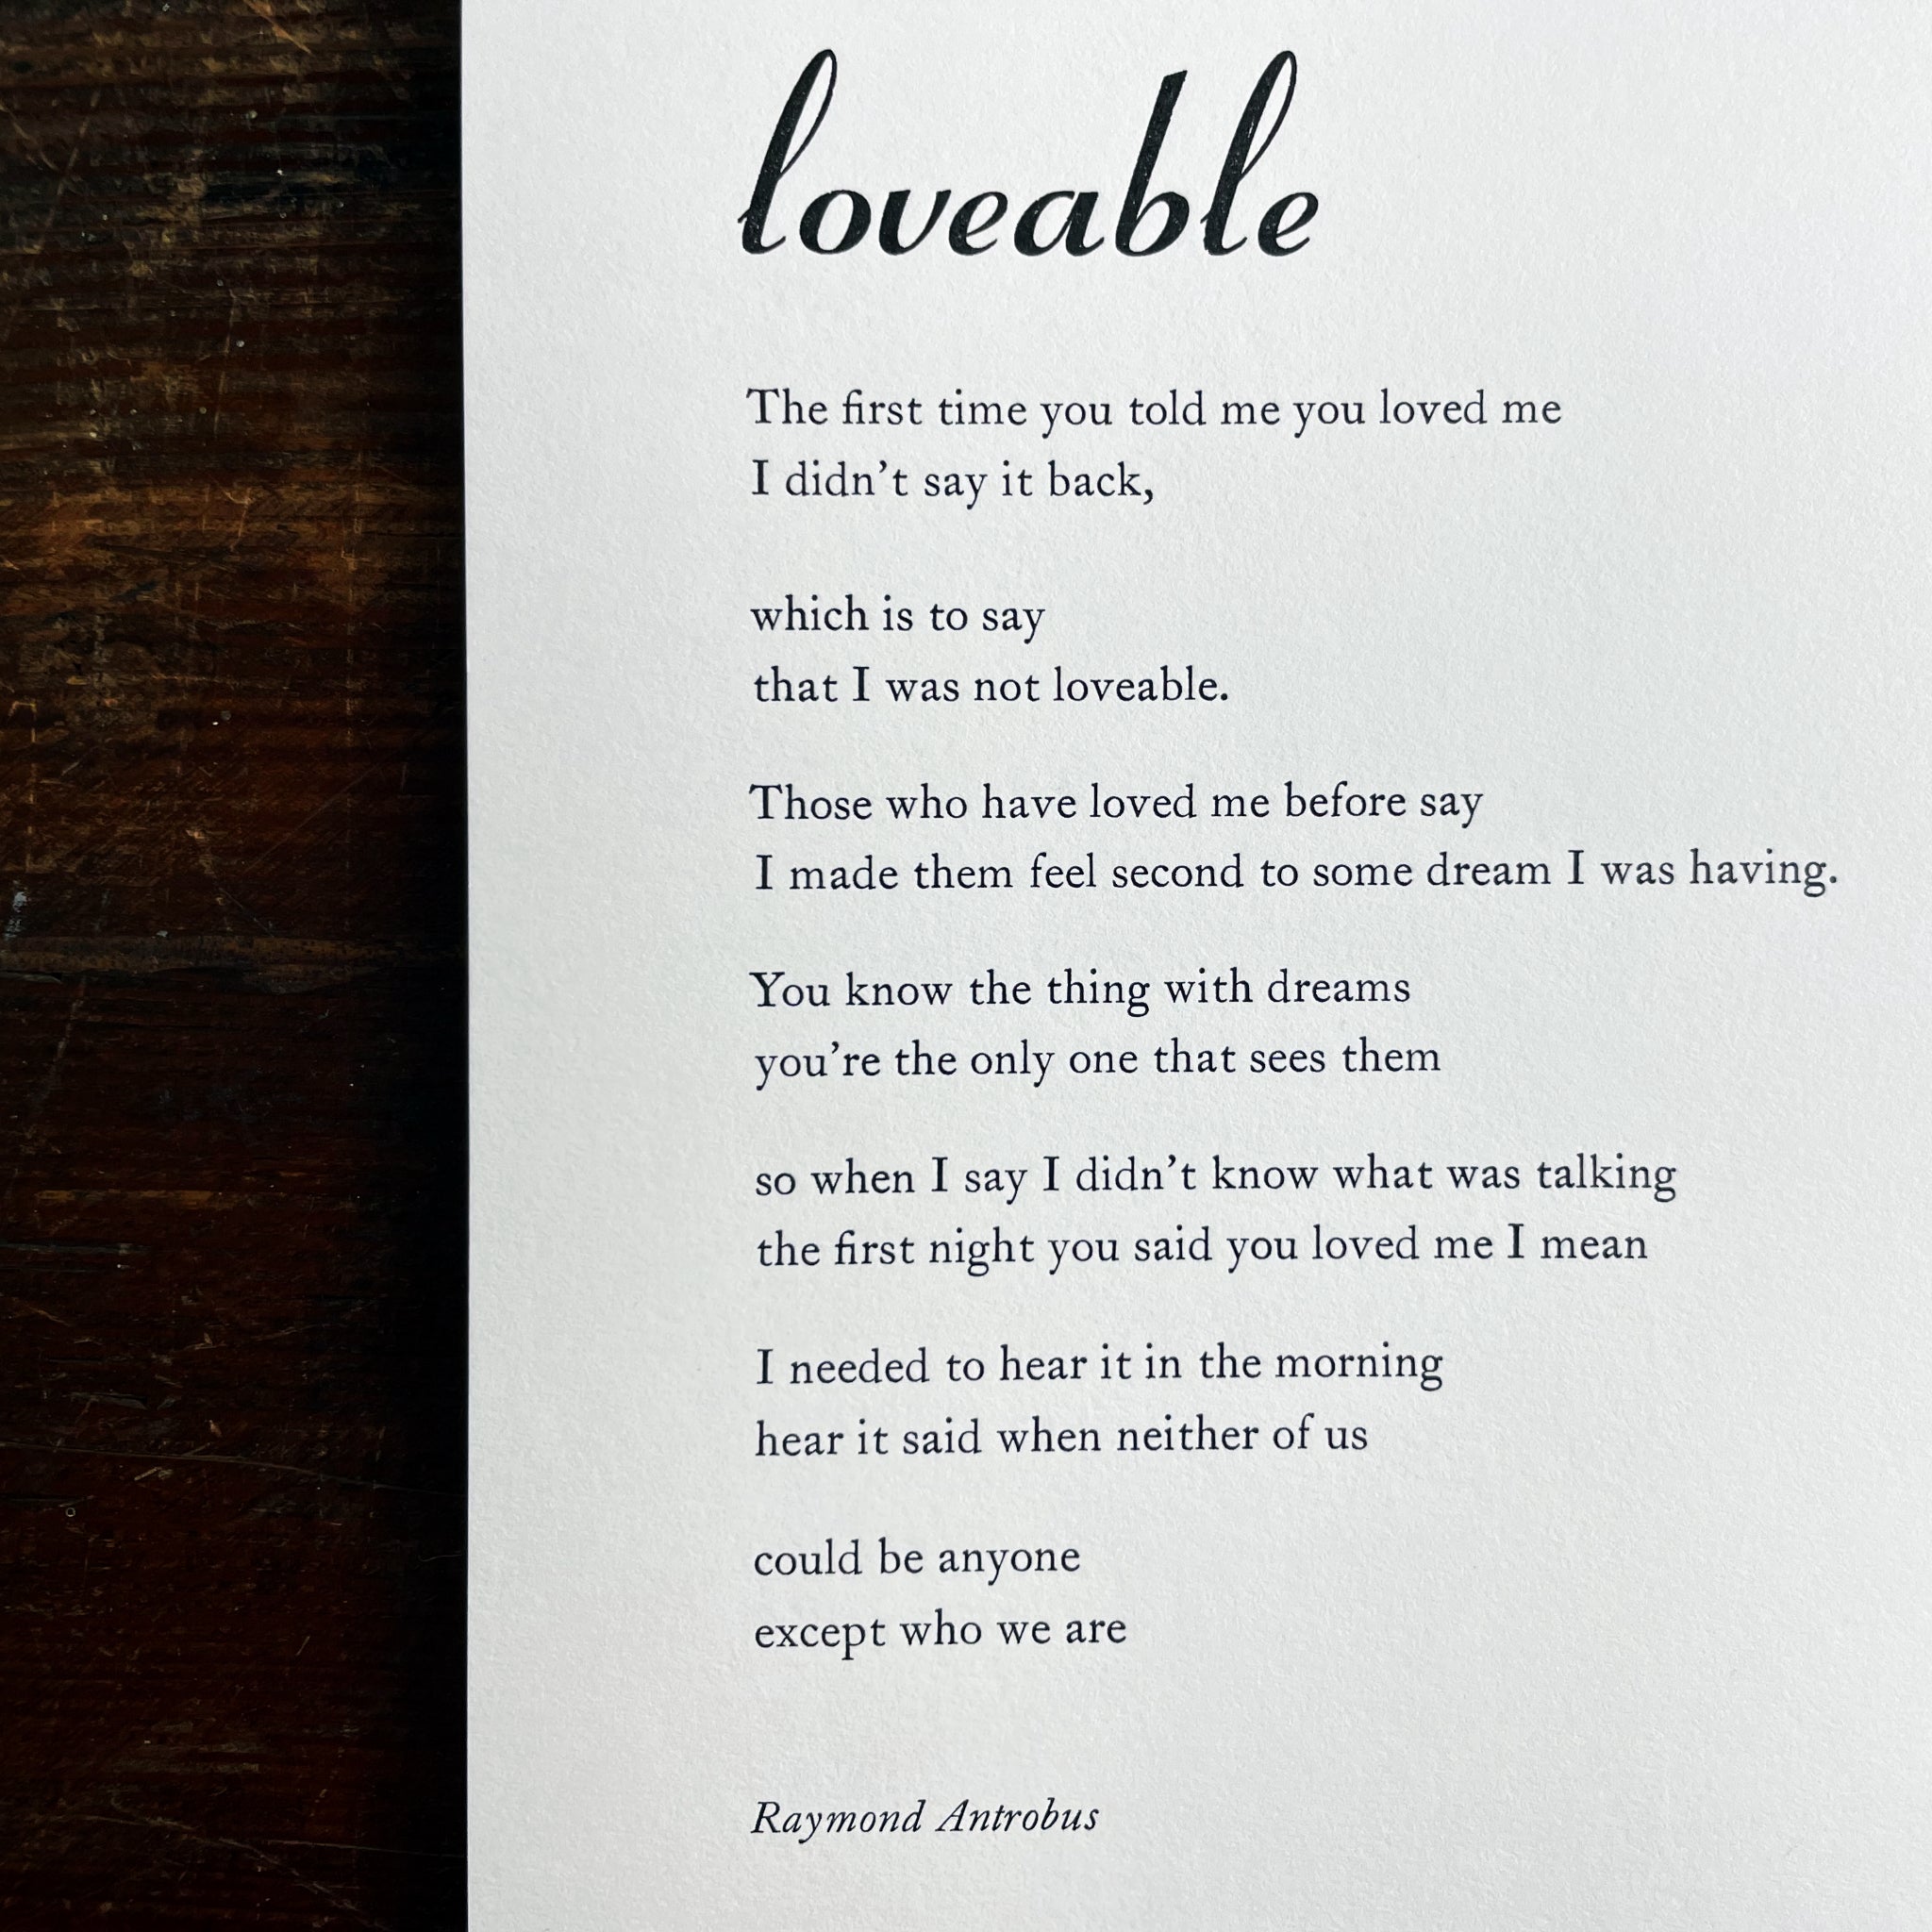 loveable
The first time you told me you loved me
I didn’t say it back,
which is to say
that I was not loveable.
Those who have loved me before say
I made them feel second to some dream I was having.
You know the thing with dreams
you’re the only one that sees them
so when I say I didn’t know what was talking
the first night you said you loved me I mean
I needed to hear it in the morning
hear it said when neither of us
could be anyone
except who we are
Raymond Antrobus